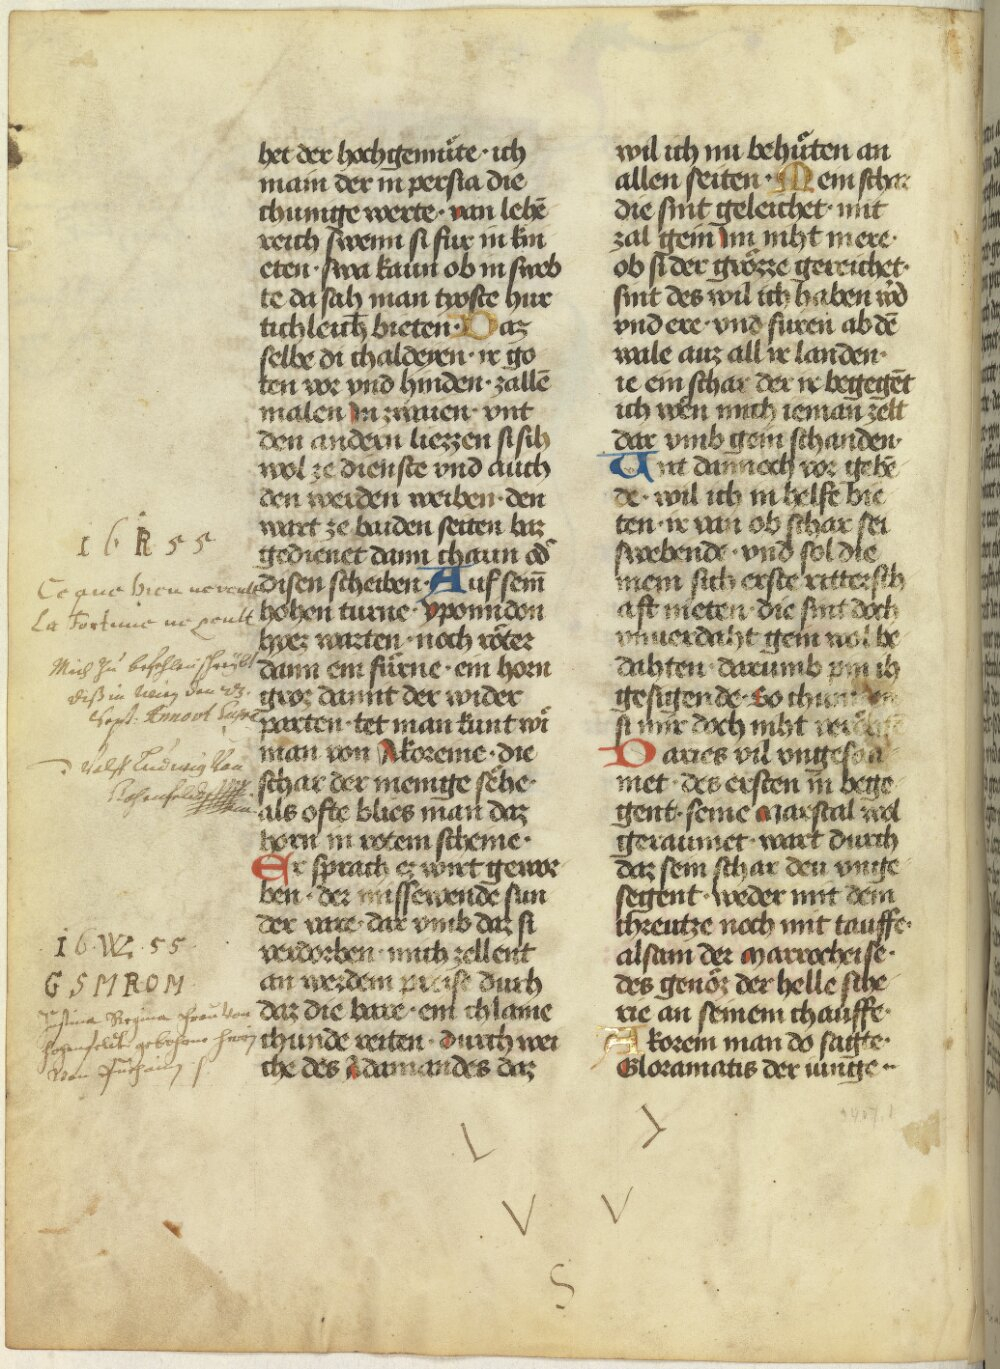 het der hochgemuͤte · ich
main der in persia die
chunige werte · van lehē
reich swenn si fur in kni
eten · swa kaun ob in sweb
te da sah man troste hur
tichleich bieten · Daz
selbe di chalderen · ir go
ten vor vnd hinden · zallē
malen in zwaien · vnt
den andern liezzen si sih
wol ze dienste vnd auch
den werden weiben · den
wart ze baiden seiten baz
gedienet dann chaun od͛
disen scheiben · Auf seim̄
hohen turne · yponnidon
hyez warten · noch roͤter
dann ein fuͤrne · ein horn
groz damit der wider
parten · tet man kunt wi
man von Akoreine · die
schar der menige sehe ·
als ofte blies man daz
horn in rotem scheine ·
Er sprach ez wirt gewor
ben · der missewende sun
der vare · dar vmb daz si
verdorben · mich zellent
an werdem preise durch
daz die bare · ein chlaine
chunde reiten · durch wei
che des Adamandes daz
wil ich nu behuͤten an
allen seiten · Mein schar
die sint geleichet · mit
zal gein im niht mere ·
ob si der groͤzze gereichet ·
sint des wil ich haben
vnd ere · vnd furen ab dē
wale auz all ir landen ·
ie ein schar der ir begegēt
ich wen mich ieman zelt
dar vmb gein schanden ·
Unt dannoch vor gebē
de · wil ich in helfe bie
ten · ir van ob schar sei
swebende · vnd sol die
mein sich erste rittersch
aft nieten · die sint doch
vnuerdaht gein wol be
dahten · darumb pin ih
gesigende · so
si mir doch niht
Daries vil vngesau
met · des ersten in bege
gent · seine marstal wol
geraumet · wart durch
daz sein schar den vnge
segent · weder mit dem
chreutze noch mit tauffe ·
alsam der marrocheise ·
des genoͤz der helle sche
rie an seinem chauffe ·
Akorein man do sagte ·
Gloramatis der vinge
16 R 55
Ce que Dieu ne veult
La Fortune ne peult
Mich zu befehlen
diß in den 23.
Sept.
Wolff Ludwig Von
Hohenfeld
16 · W · 55
G S M R O M
Regina Frau Von
Hohenfeldt gebohrne
Von
L
V V
S